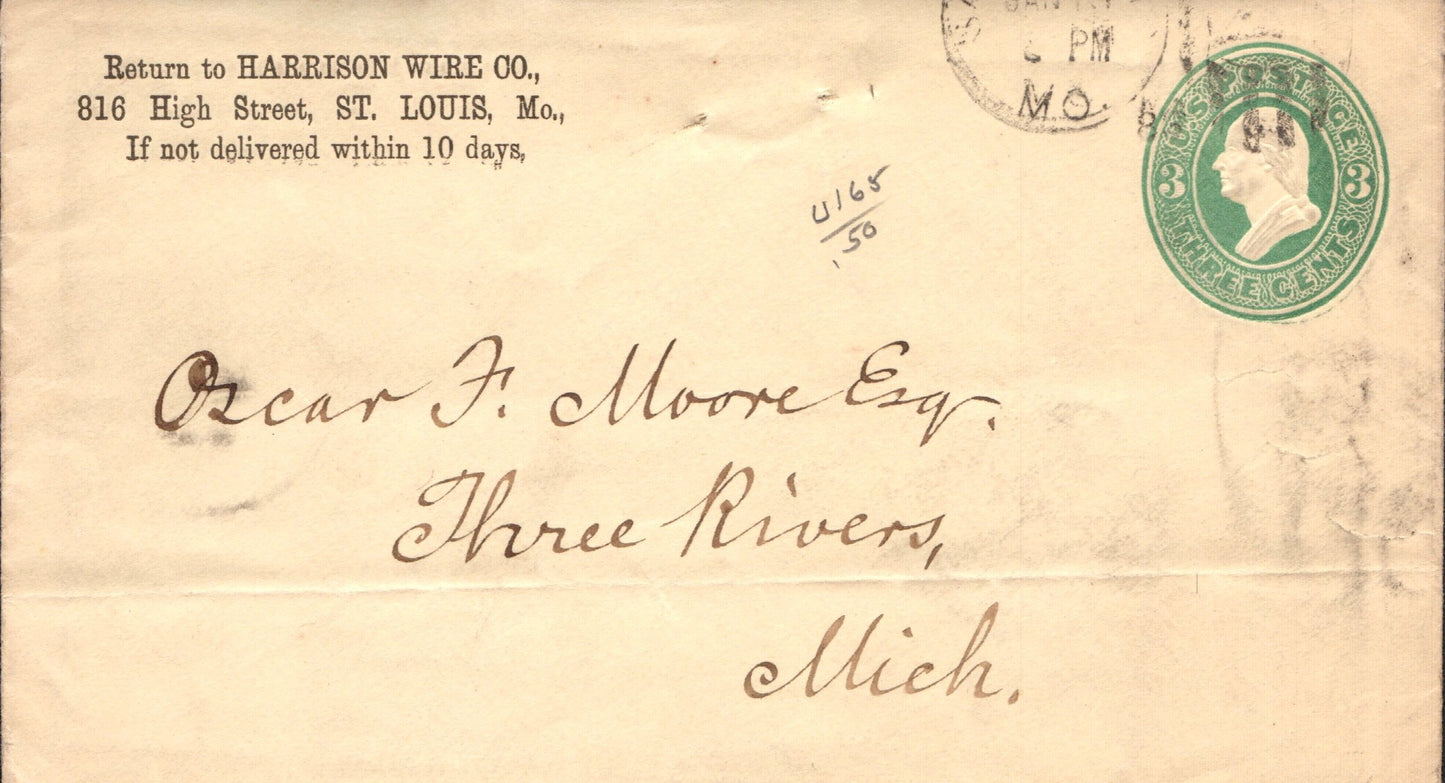 Return to HARRISON WIRE CO.,
816 High Street, ST. LOUIS, Mo.,
If not delivered within 10 days,
JAN
PM
MO.
U.S. POSTAGE
3 3
THREE CENTS
U165
.50
Oscar F. Moore Esq.
Three Rivers,
Mich.